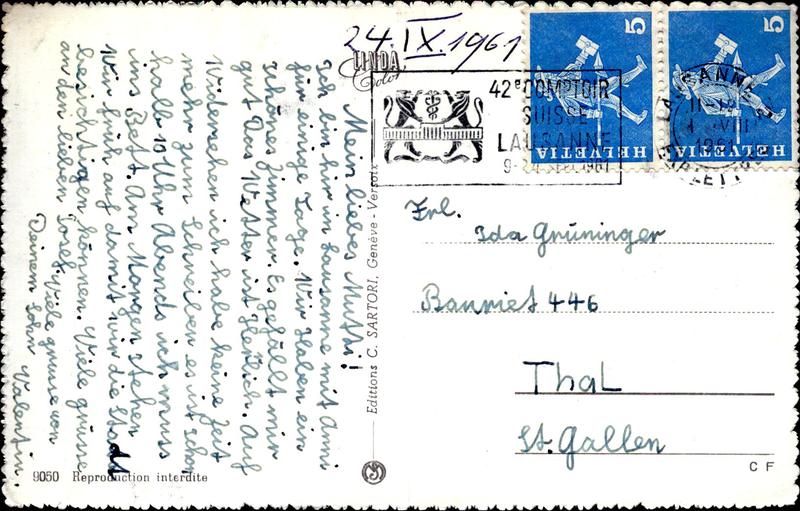 24.IX.1961
LINDA
Color
42e COMPTOIR
SUISSE
LAUSANNE
LAUSANNE 2
1961
HELVETIA 5
HELVETIA 5
Mein liebes Mutti!
Ich bin hier in Lausanne mit Ami
für einige Tage. Wir Haben ein
schönes Zimmer. Es gefällt mir
gut. Das Wetter ist Herlich. Auf
Widersehen ich habe keine Zeit
mehr zum Schreiben es ist schon
halb 10 Uhr Abends ich muss
ins Bett. Am Morgen stehen
wir früh auf damit wir die Stadt
besichtigen können. Viele grüsse
an den lieben Josef. Viele grüsse von
Deinem Sohn Valentin.
Editions C. SARTORI, Genève - Versoix
Frl.
Ida Grüninger
Bauriet 446
Thal
St. Gallen
9050 Reproduction interdite
C F